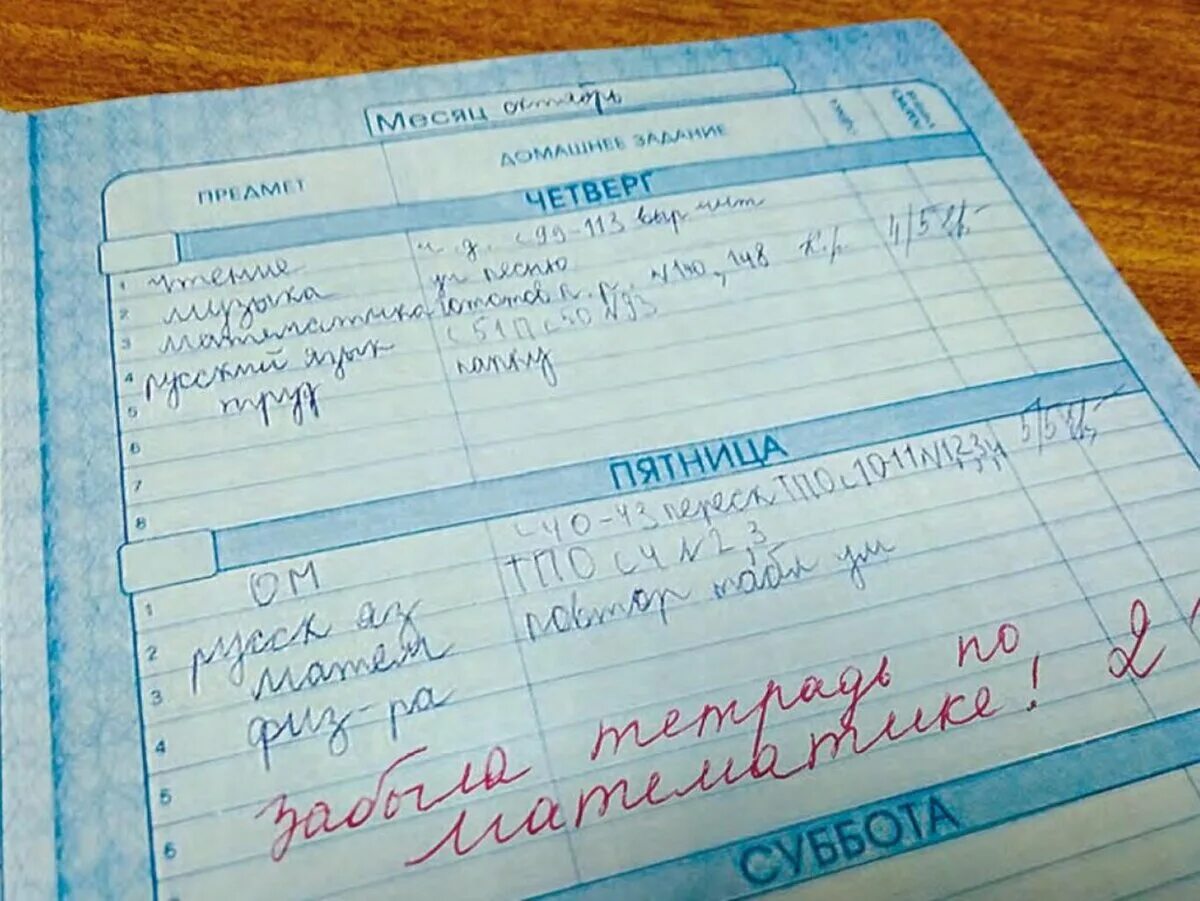 Месяц октябрь
ПРЕДМЕТ ДОМАШНЕЕ ЗАДАНИЕ
ЧЕТВЕРГ
1 чтение ч. д. с 99-113 выр чит
2 музыка уч песню
3 математика Гототов к. р. N 140, 148 К.р. 4/5
4 русский язык с 51 П с 50 N 93
5 труд папку
6
7
8
ПЯТНИЦА
1 ОМ с 40-43 переск ТПО с 10-11 N 1,2,3,4 5/5
2 русск яз ТПО с 4 N 2,3
3 матем повтор табл ум
4 физ-ра
5 забыла тетрадь по
6 математике! 2
СУББОТА